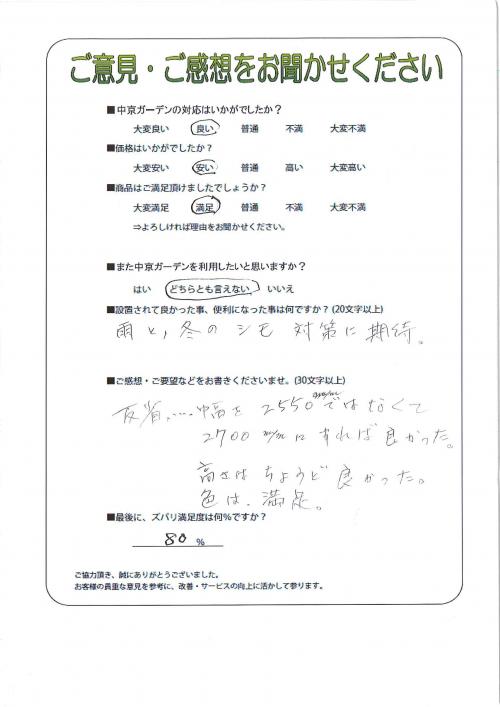 ご意見・ご感想をお聞かせください
■中京ガーデンの対応はいかがでしたか？
大変良い 良い 普通 不満 大変不満
■価格はいかがでしたか？
大変安い 安い 普通 高い 大変高い
■商品はご満足頂けましたでしょうか？
大変満足 満足 普通 不満 大変不満
⇒よろしければ理由をお聞かせください。
■また中京ガーデンを利用したいと思いますか？
はい どちらとも言えない いいえ
■設置されて良かった事、便利になった事は何ですか？(20文字以上)
雨と，冬のシモ 対策に期待。
■ご感想・ご要望などをお書きくださいませ。(30文字以上)
反省、…. 巾を 2550m/mではなくて
2700 m/mにすれば良かった。
高さは ちょうど 良かった。
色は、満足。
■最後に、ズバリ満足度は何％ですか？
80 ％
ご協力頂き、誠にありがとうございました。
お客様の貴重な意見を参考に、改善・サービスの向上に活かして参ります。